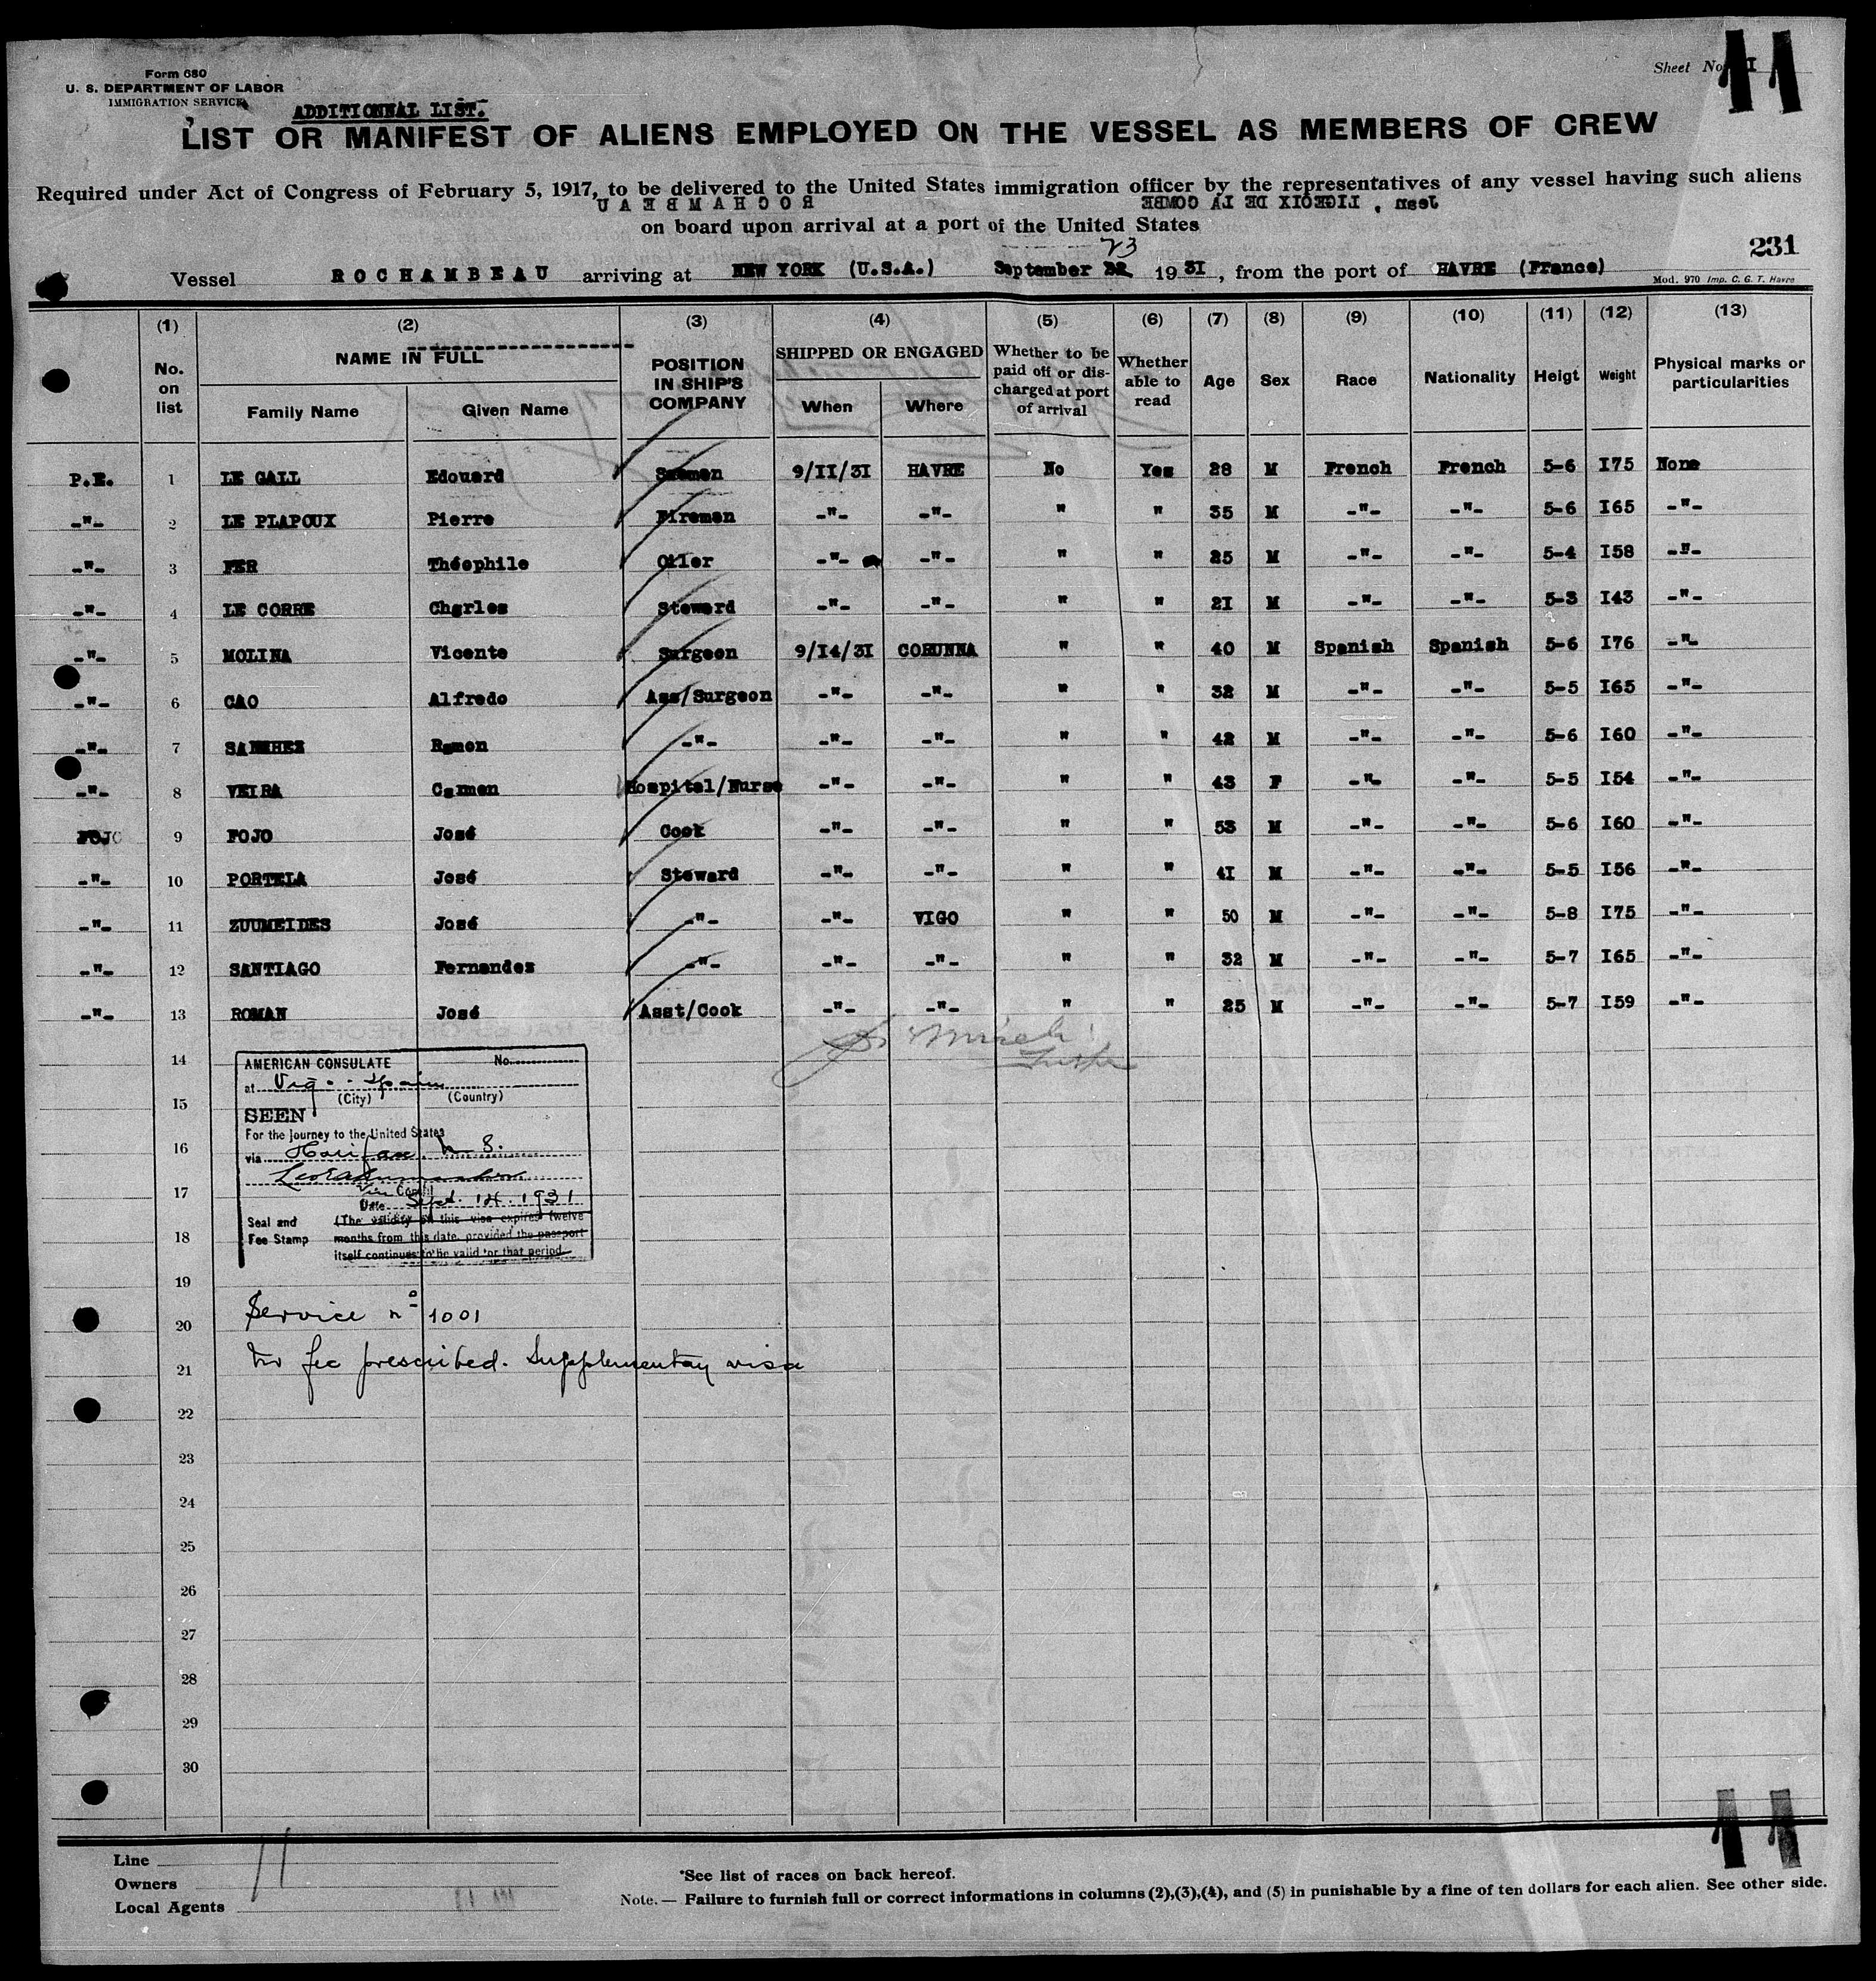 Form 680
U. S. DEPARTMENT OF LABOR
IMMIGRATION SERVICE
Sheet No I
11
ADDITIONNAL LIST.
LIST OR MANIFEST OF ALIENS EMPLOYED ON THE VESSEL AS MEMBERS OF CREW
Required under Act of Congress of February 5, 1917, to be delivered to the United States immigration officer by the representatives of any vessel having such aliens
ROCHAMBEAU Jean , LIGEOIX DE LA COMBE
on board upon arrival at a port of the United States
23
231
Vessel ROCHAMBEAU arriving at NEW YORK (U.S.A.) September 22 19 3I, from the port of HAVRE (France)
Mod. 970 Imp. C. G. T. Havre
(1) (2) (3) (4) (5) (6) (7) (8) (9) (10) (11) (12) (13)
No. on list NAME IN FULL Family Name Given Name POSITION IN SHIP'S COMPANY SHIPPED OR ENGAGED When Where Whether to be paid off or discharged at port of arrival Whether able to read Age Sex Race Nationality Heigt Weight Physical marks or particularities
P.E. 1 LE GALL Edouard Seaman 9/II/3I HAVRE No Yes 28 M French French 5-6 I75 None
-"- 2 LE PLAPOUX Pierre Fireman -"- -"- " " 35 M -"- -"- 5-6 I65 -"-
-"- 3 FER Théophile Oiler -"- -"- " " 25 M -"- -"- 5-4 I58 -"-
-"- 4 LE CORRE Charles Steward -"- -"- " " 2I M -"- -"- 5-3 I43 -"-
-"- 5 MOLINA Vicente Surgeon 9/I4/3I CORUNNA " " 40 M Spanish Spanish 5-6 I76 -"-
-"- 6 CAO Alfredo Ass/Surgeon -"- -"- " " 32 M -"- -"- 5-5 I65 -"-
-"- 7 Ramon -"- -"- -"- " " 42 M -"- -"- 5-6 I60 -"-
-"- 8 VEIRA Carmen Hospital/Nurse -"- -"- " " 43 F -"- -"- 5-5 I54 -"-
FOJO 9 FOJO José Cook -"- -"- " " 53 M -"- -"- 5-6 I60 -"-
-"- 10 PORTELA José Steward -"- -"- " " 4I M -"- -"- 5-5 I56 -"-
-"- 11 ZUUMEIDES José -"- -"- VIGO " " 50 M -"- -"- 5-8 I75 -"-
-"- 12 SANTIAGO Fernandez -"- -"- -"- " " 32 M -"- -"- 5-7 I65 -"-
-"- 13 ROMAN José Asst/Cook -"- -"- " " 25 M -"- -"- 5-7 I59 -"-
14
AMERICAN CONSULATE No.
at Vigo. Spain
(City) (Country)
15
SEEN
For the journey to the United States
16
via Halifax N S.
17
Vice Consul
Date Sept. 14. 1931
Seal and Fee Stamp
(The validity of this visa expires twelve
18
months from this date, provided the passport
itself continues to be valid for that period
19
Service nº 1001
20
No fee prescribed. Supplementary visa
21
22
23
24
25
26
27
28
29
30
11
Line
Owners
Local Agents
11
*See list of races on back hereof.
Note. — Failure to furnish full or correct informations in columns (2),(3),(4), and (5) in punishable by a fine of ten dollars for each alien. See other side.